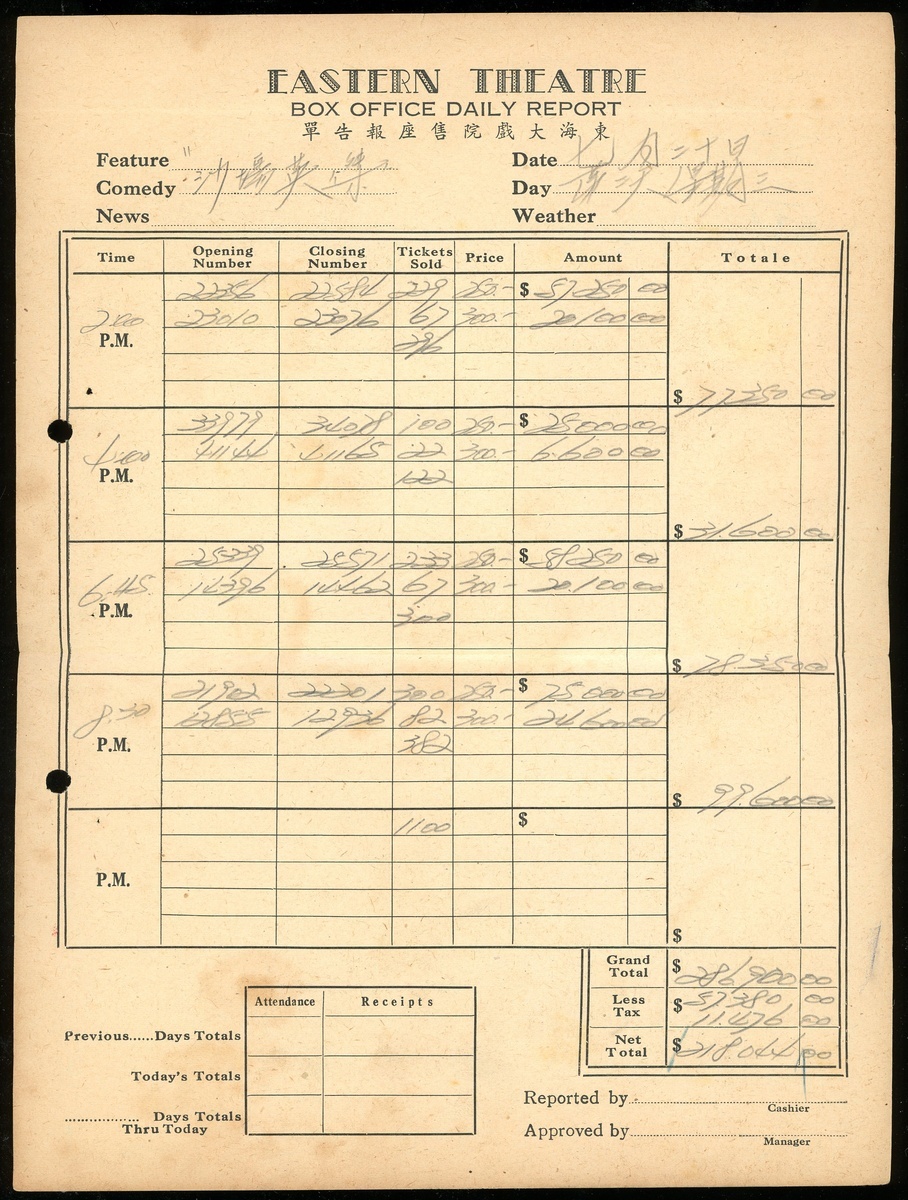 EASTERN THEATRE
BOX OFFICE DAILY REPORT
單告報座售院戲大海東
Feature
Date 九月二十日
Comedy
Day 星期三
News
Weather
Time Opening Number Closing Number Tickets Sold Price Amount Totale
2:00 P.M.
22356 22584 229 250.- $ 57250 00
23010 23076 67 300.- 20100 00
296
$ 77350 00
4:00 P.M.
33979 34078 100 250.- $ 25000 00
41144 41165 22 300.- 6.600 00
122
$ 31.600 00
6:45 P.M.
25339 25571 233 250.- $ 58250 00
14396 14462 67 300.- 20.100 00
300
$ 78.350 00
8:30 P.M.
21902 22201 300 250.- $ 75000 00
12855 12936 82 300.- 24.600 00
382
$ 99.600 00
P.M.
1100 $
$
Grand Total $ 286,900 00
Less Tax $ 57.380 00
11.476 00
Net Total $ 218.044 00
Attendance Receipts
Previous......Days Totals
Today's Totals
.................. Days Totals
Thru Today
Reported by
Cashier
Approved by
Manager